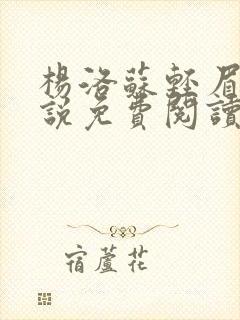 楊洛蘇輕眉
說免費閱讀
宿蘆花